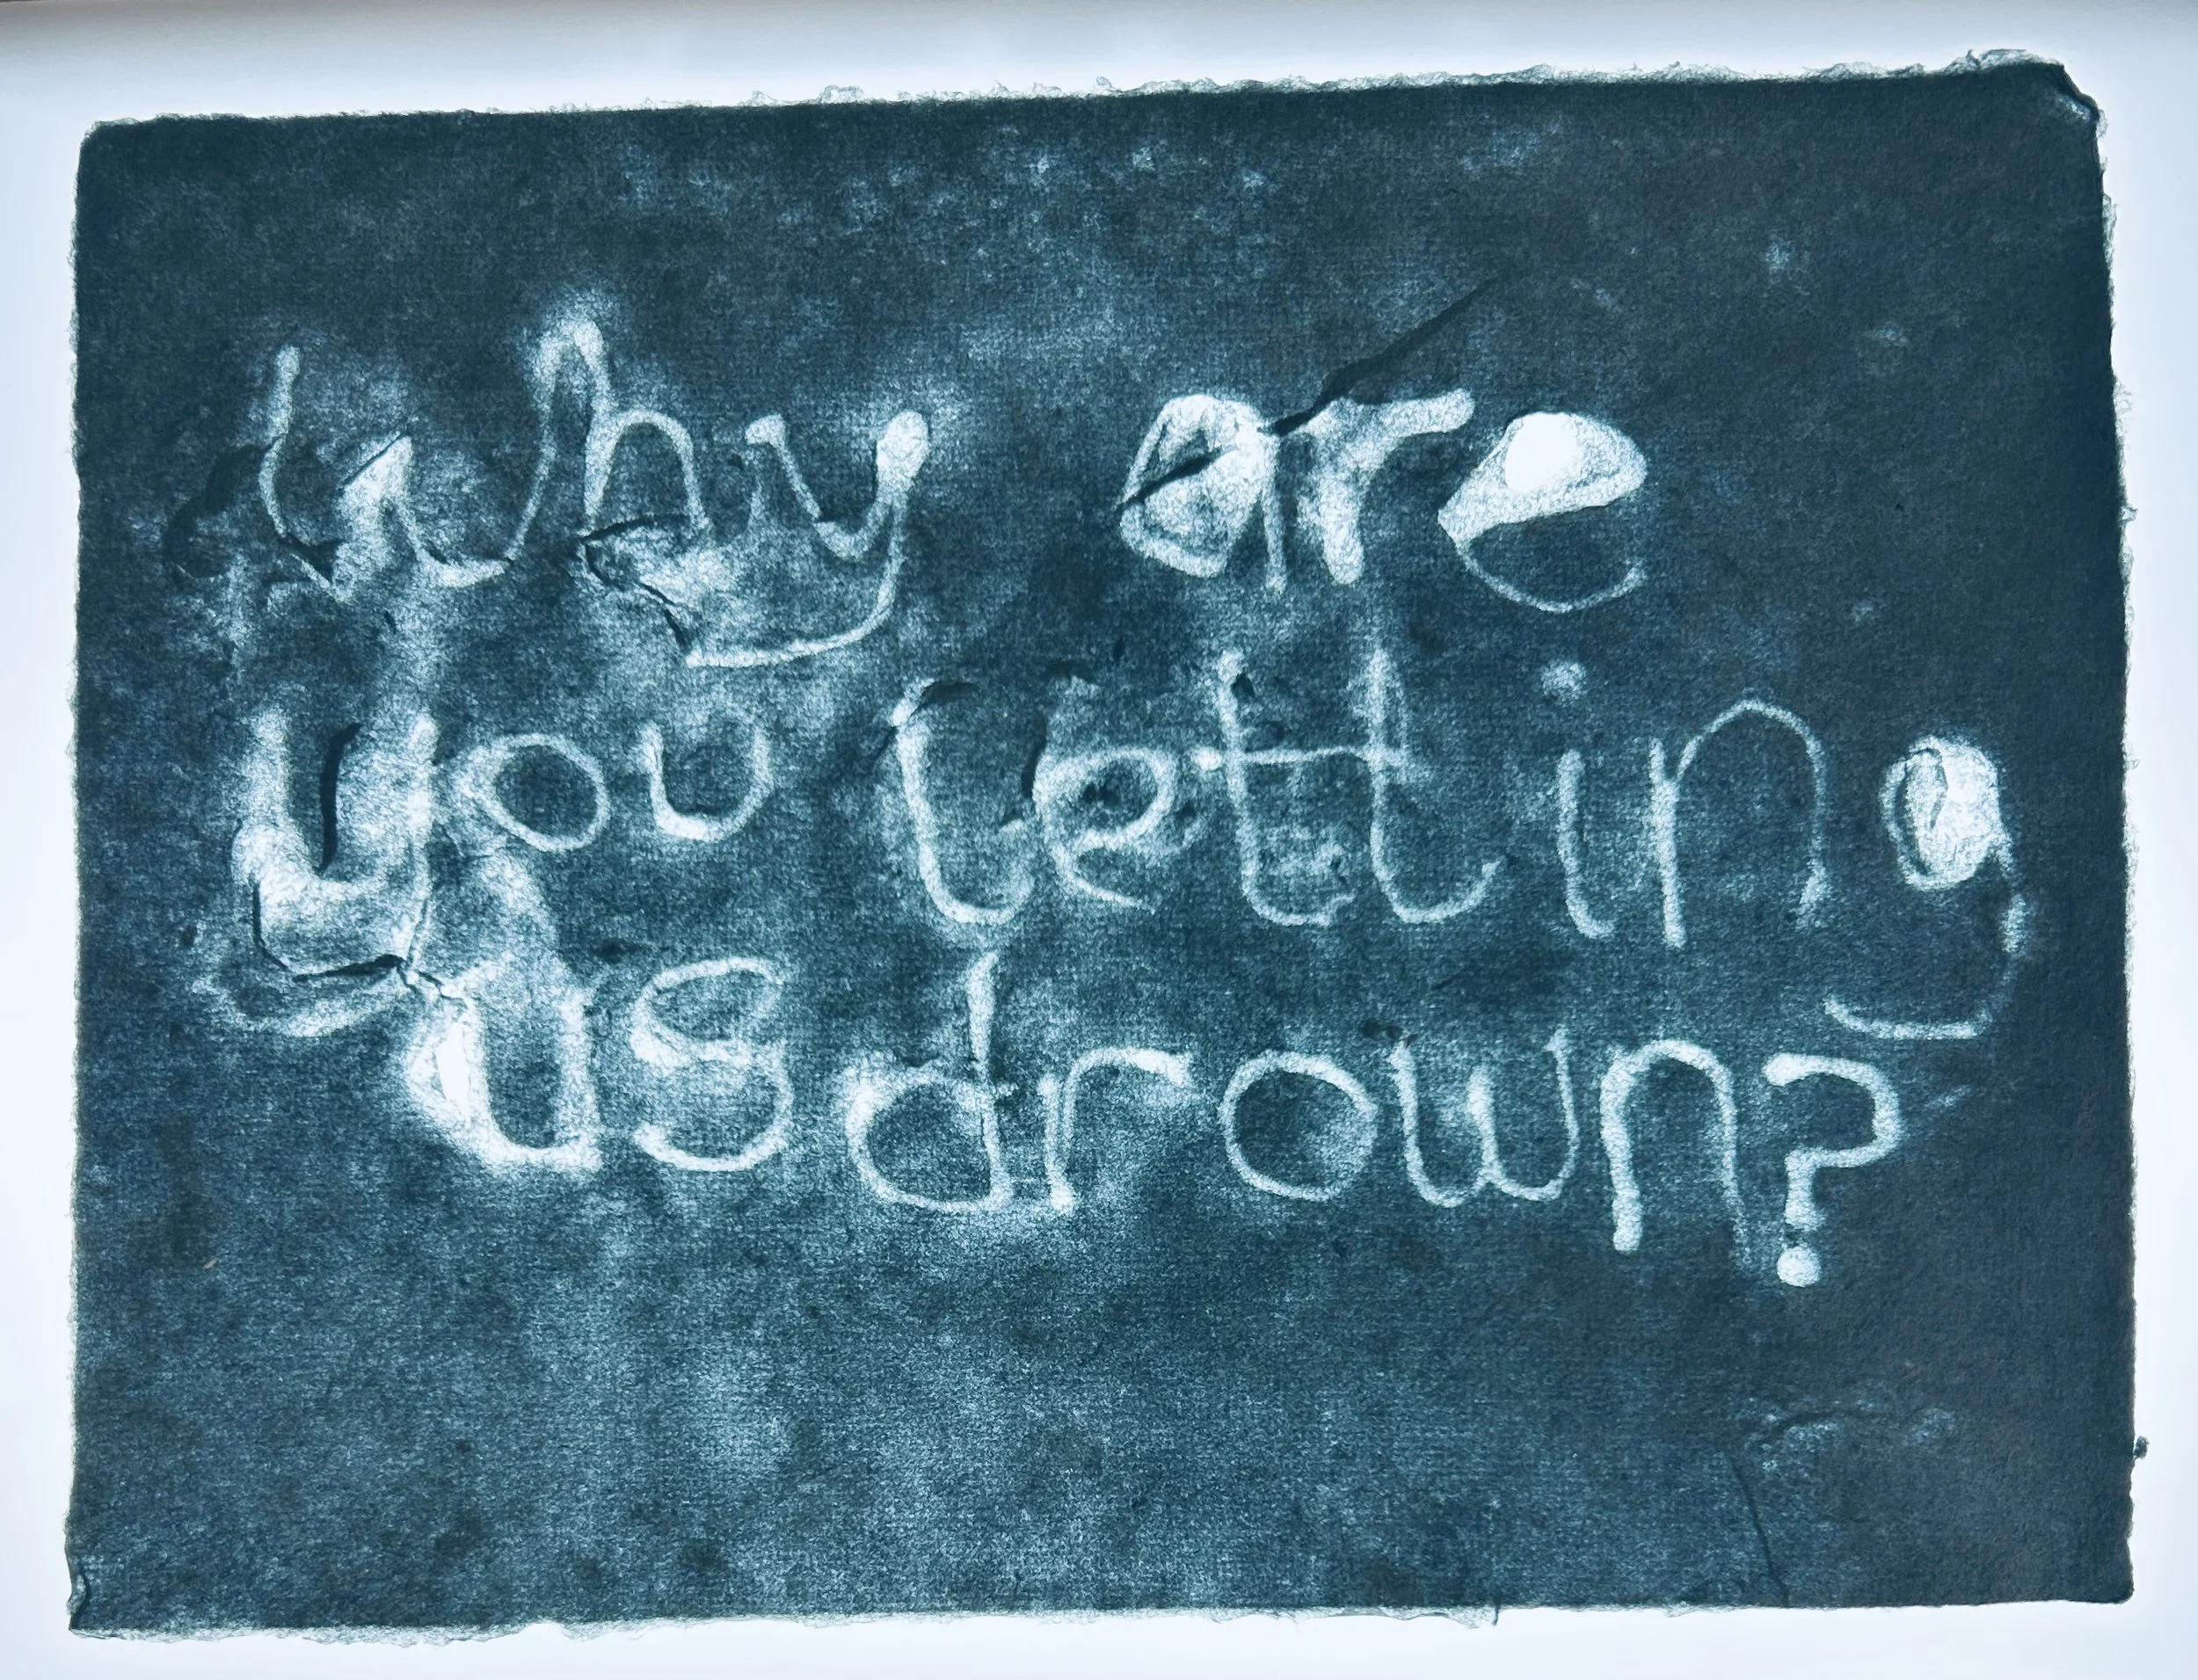 Why are
you letting
us drown?